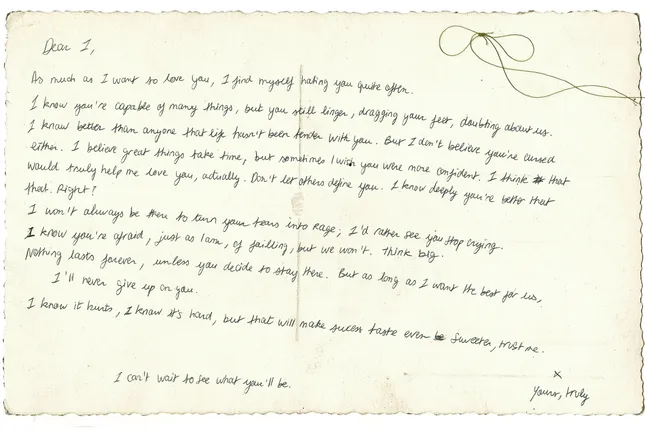 Dear I,
As much as I want to love you, I find myself hating you quite often.
I know you're capable of many things, but you still linger, dragging your feet, doubting about us.
I know better than anyone that life hasn't been tender with you. But I don't believe you're cursed
either. I believe great things take time, but sometimes I wish you were more confident. I think that
would truly help me love you, actually. Don't let others define you. I know deeply you're better that
that. Right?
I won't always be there to turn your tears into rage; I'd rather see you stop crying.
I know you're afraid, just as I am, of failling, but we won't. Think big.
Nothing lasts forever, unless you decide to stay there. But as long as I want the best for us,
I'll never give up on you.
I know it hurts, I know it's hard, but that will make sucess taste even sweeter, trust me.
I can't wait to see what you'll be.
x
Yours, truly